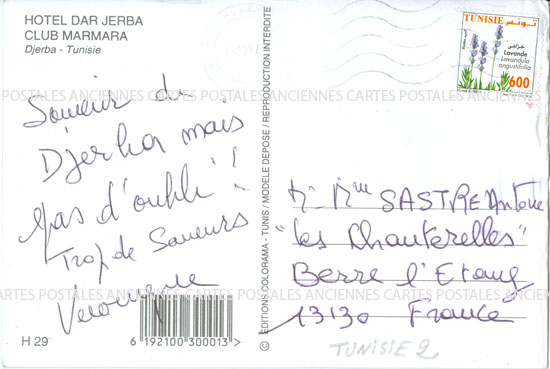 HOTEL DAR JERBA
CLUB MARMARA
Djerba - Tunisie
Souvenir de
Djerba mais
pas d'oubli !
Trop de Saveurs
Veronique
H 29
6 192100 300013 >
© EDITIONS COLORAMA - TUNIS / MODELE DEPOSE / REPRODUCTION INTERDITE
TUNISIE تونس
خزامى
Lavande
Lavandula
angustifolia
600
Mr Mme SASTRE Antoine
"les Chanterelles"
Berre l'Etang
13130 France
TUNISIE 2
CARTES POSTALES ANCIENNES CARTES POSTALES ANCIENNES CARTES POSTALES
CARTES POSTALES ANCIENNES CARTES POSTALES ANCIENNES CARTES POSTALES